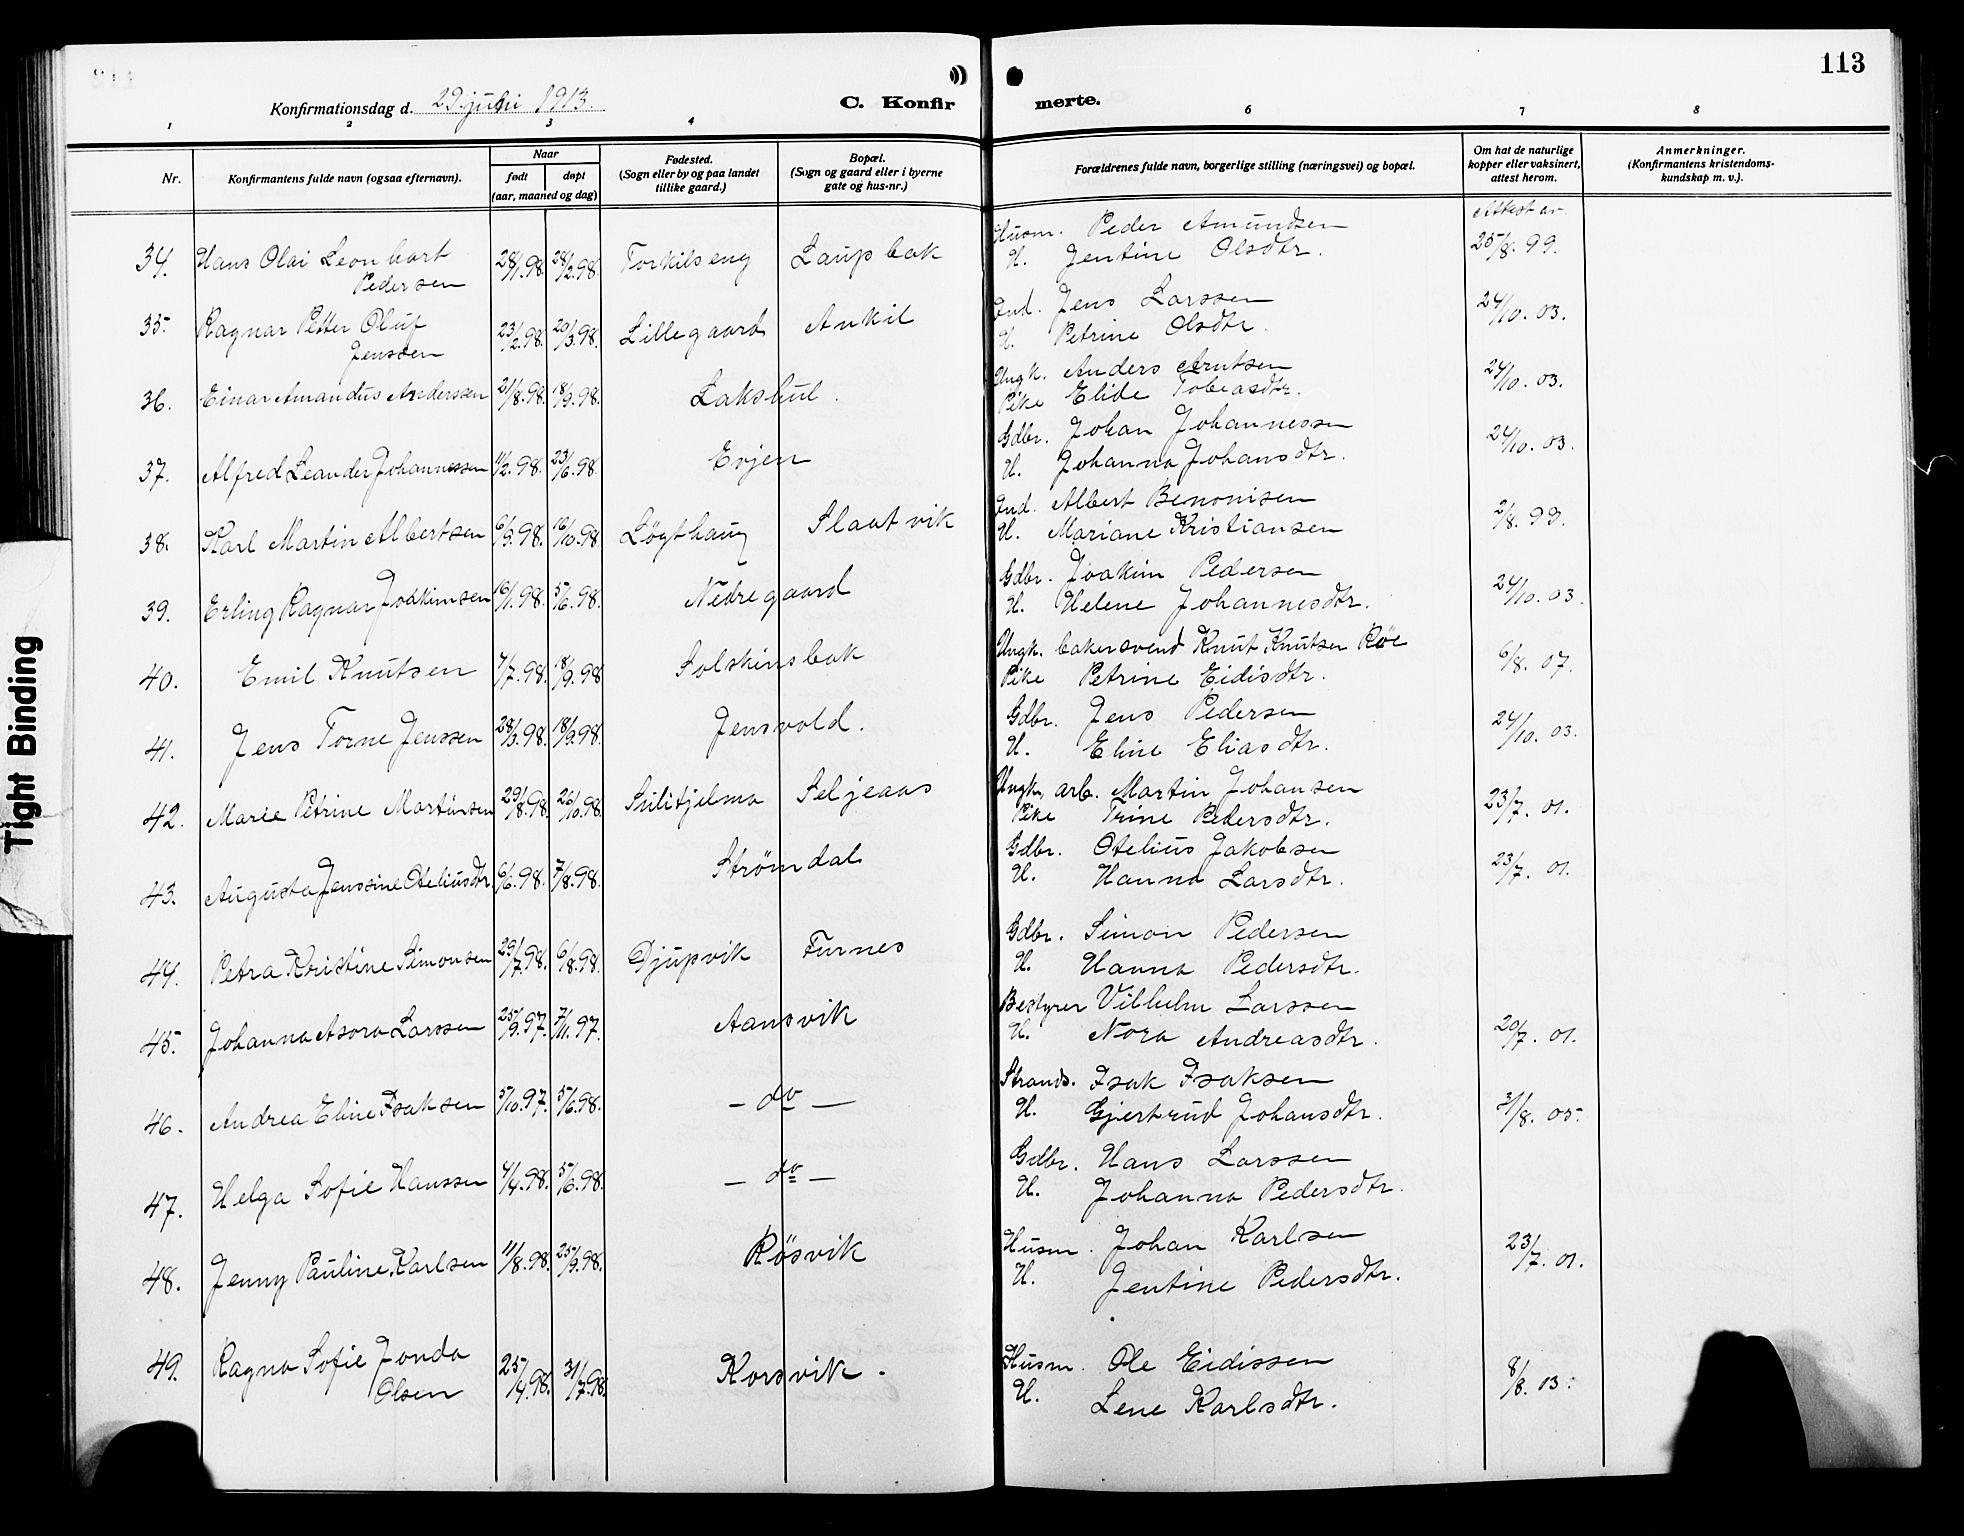 113
Konfirmationsdag d. 29 juni 1913.
C. Konfirmerte.
1 2 3 4 6 7 8
Nr.
Konfirmantens fulde navn (ogsaa efternavn).
Naar
født døpt
(aar, maaned og dag)
Fødested.
(Sogn eller by og paa landet
tillike gaard.)
Bopæl.
(Sogn og gaard eller i byerne
gate og hus-nr.)
Forældrenes fulde navn, borgerlige stilling (næringsvei) og bopæl.
Om hat de naturlige
kopper eller vaksinert,
attest herom.
Anmerkninger.
(Konfirmantens kristendoms-
kundskap m. v.).
Attest av
34. Hans Olai Leonhart 28/1.98. 28/2.98. Torkilseng Laupbak Husm. Peder Amundsen 25/8. 99.
Pedersen H. Jentine Olsdtr.
35. Ragnar Petter Oluf 23/2.98. 20/3.98. Lillegaard Ankil Ind. Jens Larssen 24/10. 03.
Jenssen H. Petrine Olsdtr.
36. Einar Amandus Anderssen 21/8.98. 18/9.98. Lakshul. Ungk. Anders Arntsen 24/10. 03.
Pike Elide Tobeasdtr.
37. Alfred Leander Johannessen 11/2.98. 23/6.98. Evjen Gdbr. Johan Johannessen 24/10. 03.
H. Johanna Johansdtr.
38. Karl Martin Albertsen 6/9.98. 16/10.98 Løgthaug Slaatvik Ind. Albert Benonisen 2/8. 99.
H. Mariane Kristiansen
39. Erling Ragnar Joakimsen 16/1.98. 5/6.98. Nedregaard Gdbr. Joakim Pedersen 24/10. 03.
H. Helene Johannesdtr.
40. Emil Knutsen 4/7.98. 18/9.98 Solskinsbak Ungk. bakersvend Knut Knutsen Røe 6/8. 07.
Pike Petrine Eidisdtr.
41. Jens Torne Jenssen 28/3.98. 18/9.98. Jensvold. Gdbr. Jens Pedersen 24/10. 03.
H. Eline Eliasdtr.
42. Marie Petrine Martinsen 29/8.98. 26/10.98. Sulitjelma Seljeaas Ungk. arb. Martin Johansen 23/7. 01.
Pike Trine Pedersdtr.
43. Augusta Jenssine Oteliusdtr. 6/6.98. 7/8.98. Strømdal Gdbr. Otelius Jakobsen 23/7. 01.
H. Hanna Larsdtr.
44. Petra Kristine Simonsen 29/7.98. 6/8.98. Djupvik Furnes Gdbr. Simon Pedersen
H. Hanna Pedersdtr.
45. Johanna Asora Larssen 25/9.97. 7/11.97. Aansvik Bestyrer Vilhelm Larssen
H. Nora Andreasdtr. 20/7. 01.
46. Andrea Eline Isaksen 5/10.97. 5/6.98. — do — Strands. Isak Isaksen
H. Gjertrud Johansdtr. 31/8. 05.
47. Helga Sofie Hanssen 4/4.98. 5/6.98. — do — Gdbr. Hans Larssen
H. Johanna Pedersdtr.
48. Jenny Pauline Karlsen 11/8.98. 25/9.98. Røsvik Husm. Johan Karlsen 23/7. 01.
H. Jentine Pedersdtr.
49. Ragna Sofie Jonda 25/4.98. 31/7.98. Korsvik. Husm. Ole Eidissen 8/8. 03.
Olsen H. Lene Karlsdtr.
Tight Binding